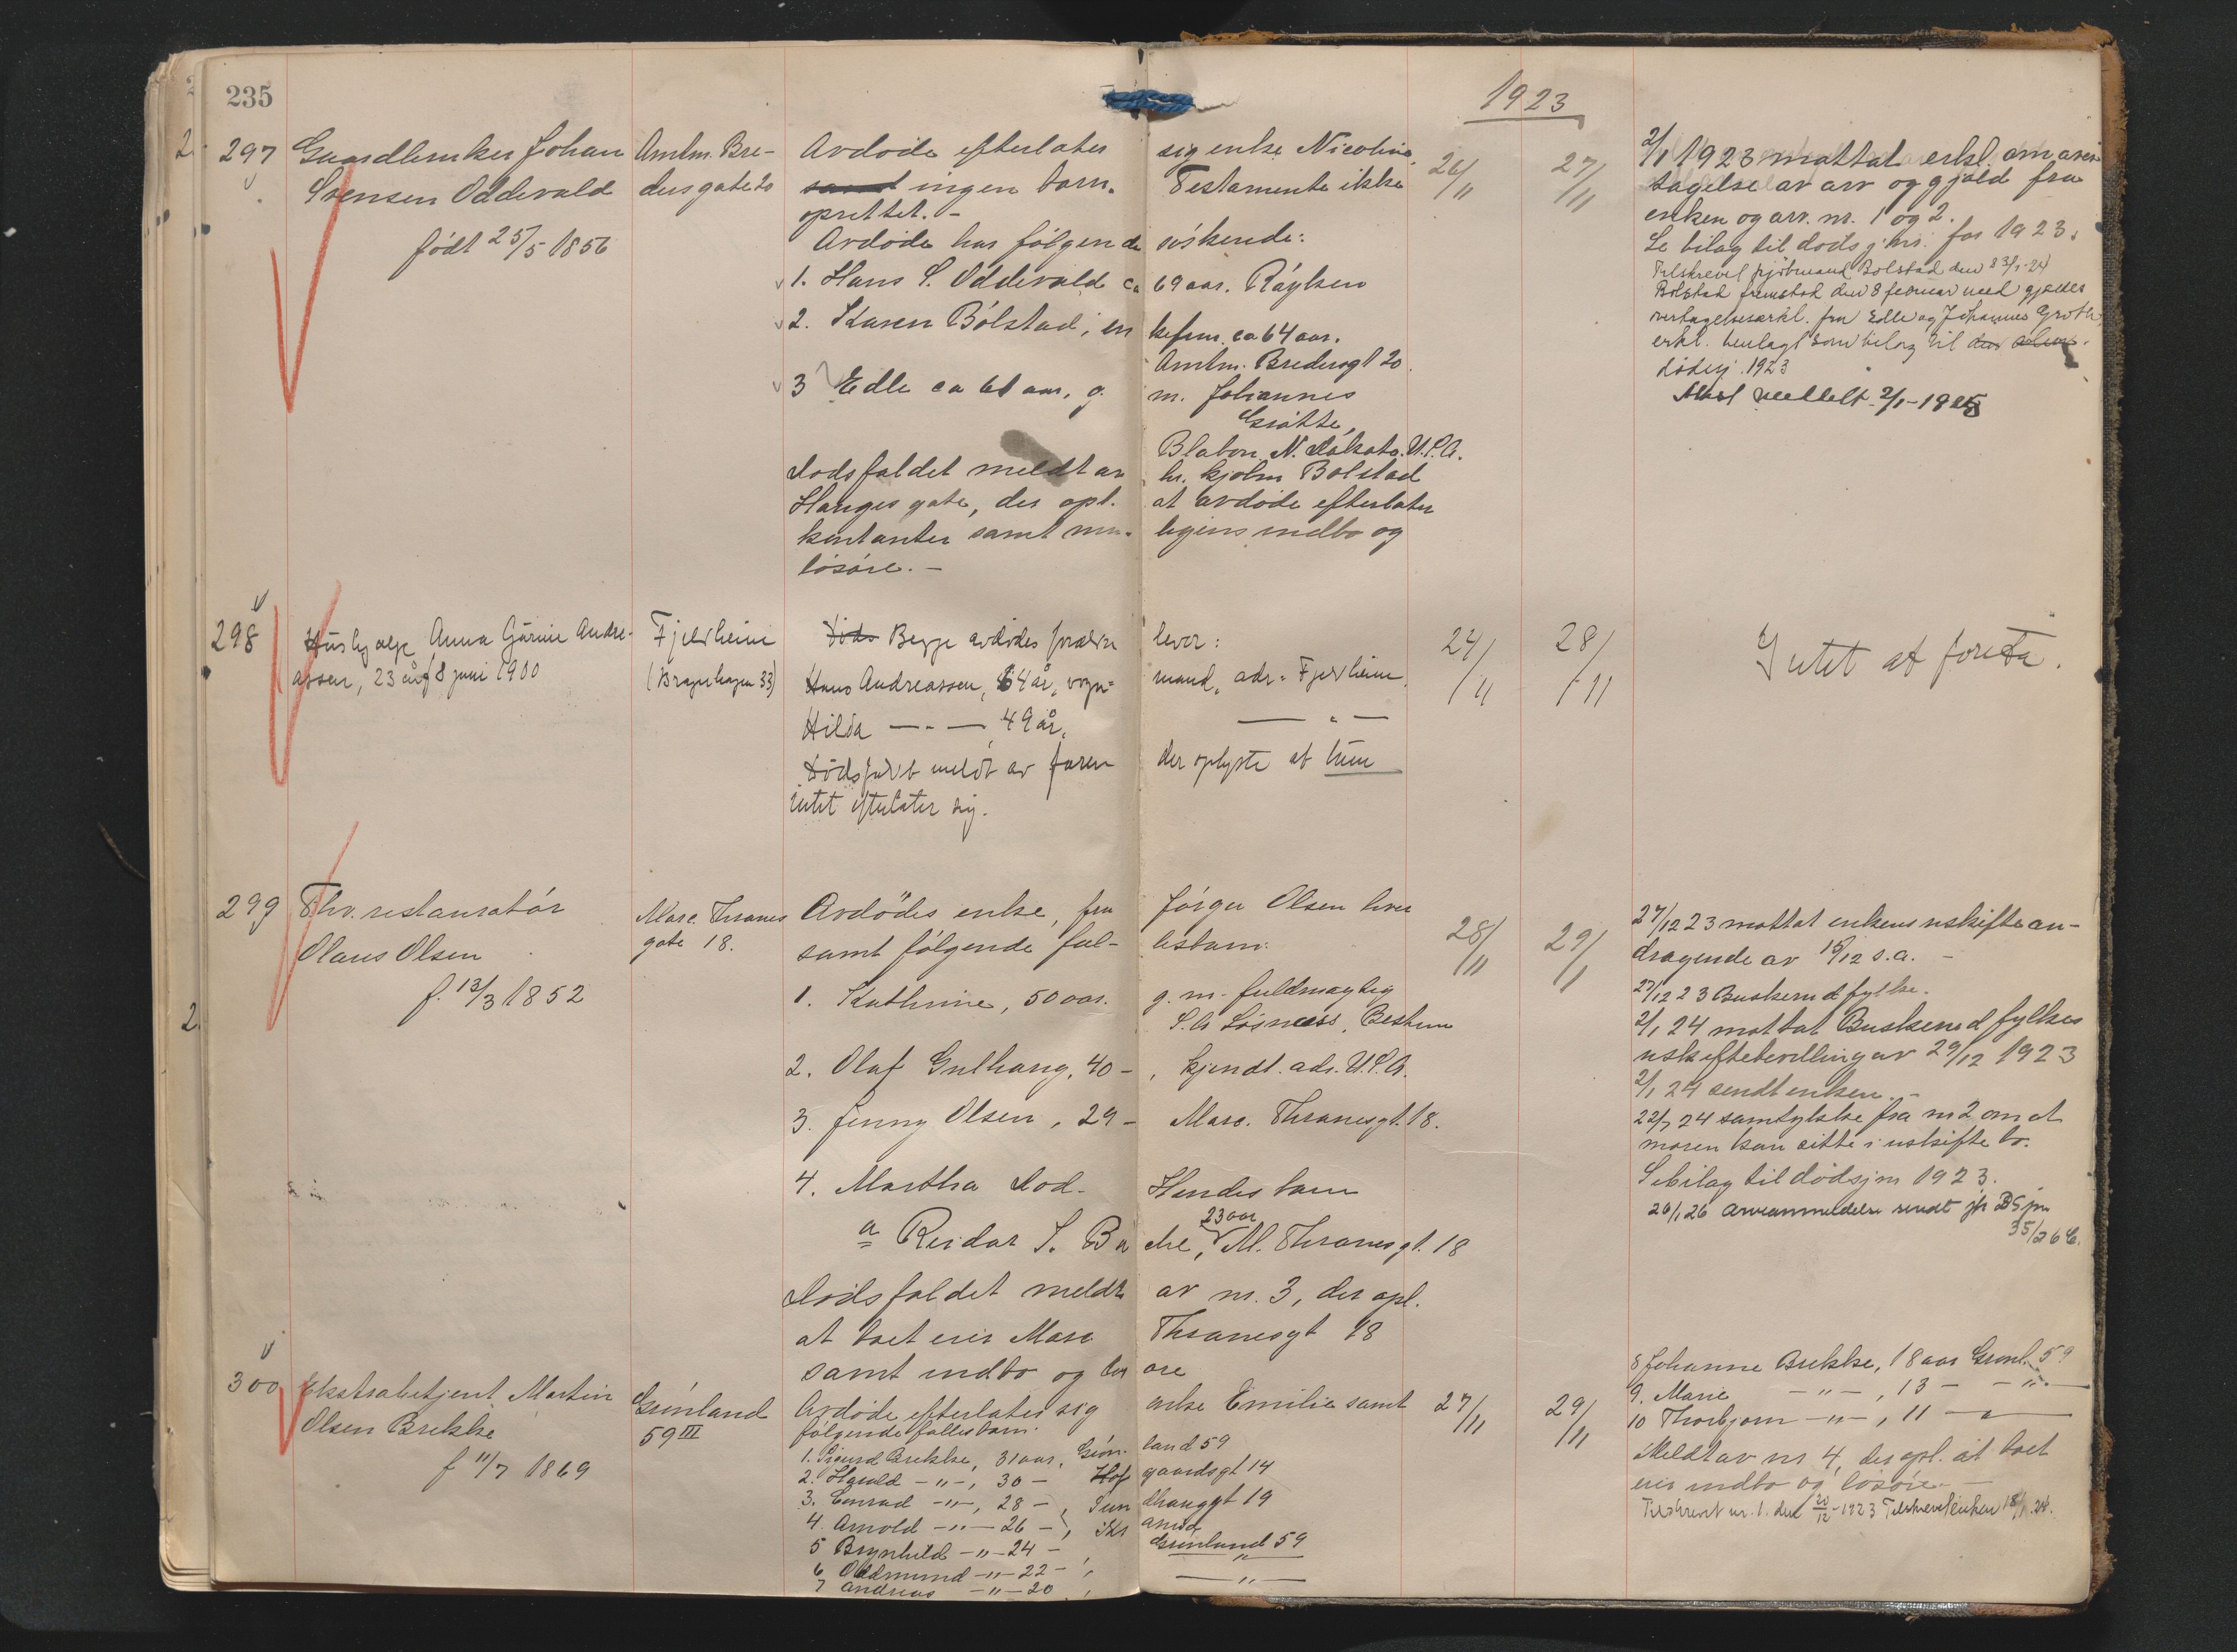 235
1923
297 Gaardbruker Johan Amtm. Bre- Avdøde efterlater sig enke Nicoline 24/11 27/11
Svensen Oddevald dersgate 20 samt ingen barn. Testamente ikke
oprettet. -
født 25/5 1856
Avdøde har følgende søskende:
1. Hans S. Oddevald ca 69 aar. Røyken
2. Karen Bolstad, enkefru ca 64 aar.
Amtm. Bredersgt 20.
3 Edle ca 61 aar, g. m. Johannes
Grøtte,
Blabon N. Dakota. U.S.A.
Dødsfaldet meldt av hr. kjøbm Bolstad
Hauges gate, der opl. at avdøde efterlater
kontanter samt mu- ligens indbo og
løsøre. -
2/1 1923 mottat erkl. om over-
tagelse av arv og gjæld fra
enken og arv. nr. 1 og 2.
Se bilag til dødsjrn. for 1923.
Tilskrevet kjøbmand Bolstad den 23/1-24
Bolstad fremstod den 8 februar med gjælds
overtagelseserkl. fra Edle og Johannes Grøtte
erkl. henlagt som bilag til
dødsj. 1923
298 Hushjælp Anna Gurine Andre- Fjeldheim Døds Begge avdødes foreldre lever: 24/11 28/11 Intet at foreta.
assen, 23 år f 8 juni 1900 (Bragerhagen 33) Hans Andreassen, 64 år, vogn- mand, adr. Fjeldheim
Hilda — " — 49 år, — " —
Dødsfald meldt av faren der oplyste at hun
intet efterlater sig.
299 Fhv. restauratør Marc. Thranes Avdødes enke, fru Jørgu Olsen lever 28/11 29/11
Olaus Olsen gate 18. samt følgende fæl- lesbarn:
f. 13/3 1852
1. Kathrine, 50 aar. g. m. fuldmægtig
S. A Løsnæss, Bestum
2. Olaf Gulhaug, 40 - , kjendt. adr. U.S.A.
3. Jenny Olsen, 29 - Marc. Thranesgt. 18.
4. Martha død - Hendes barn
23 aar
a Reidar S. Bache, M. Thranesgt. 18
Dødsfaldet meldt av nr. 3, der opl.
at boet eier Marc Thranesgt 18
samt indbo og løsøre
27/12 23 mottat enkens uskiftean-
dragende av 15/12 s.a. -
27/12 23 Buskerud fylke.
2/1 24 mottat Buskerud fylkes
uskiftebevilling av 29/12 1923
2/1 24 sendt enken. -
22/7 24 samtykke fra nr 2 om at
moren kan sitte i uskifte bo.
Se bilag til dødsjrn 1923.
20/1 26 arveanmeldelse sendt jfr DS jrn
35/26
300 Ekstrabetjent Martin Grønland Avdøde efterlater sig enke Emilie samt 27/11 29/11
Olsen Brekke 59 III følgende fællesbarn:
f 11/7 1869
1. Sigurd Brekke, 31 aar, Grønland 59
2. Harald - " -, 30 - Hofgaardsgt 14
3. Conrad - " -, 28 -, Sundhauggt 19
4. Arnold - " - 26 -,
5 Brynhild - " - 24 - Grønland 59
6. Oddmund - " - 22 - "
7 Andreas - " - 20 - " -
8 Johanne Brekke, 18 aar Grønl. 59
9. Marie - " - , 13 - - " -
10 Thorbjørn - " - , 11 - " -
Meldt av nr 4, der opl. at boet
eier indbo og løsøre -
Tilskrevet nr. 1. den 20/12 - 1923 Tilskrevet enken 18/1. 24.